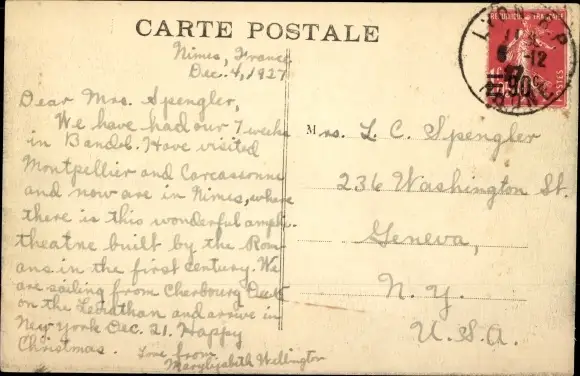 CARTE POSTALE
Nimes, France
Dec. 4, 1927
Dear Mrs. Spengler,
We have had our 7 weeks
in Bandol. Have visited
Montpellier and Carcassonne
and now are in Nimes, where
there is this wonderful amphi-
theatre built by the Rom-
ans in the first century. We
are sailing from Cherbourg Dec. 15
on the Leviathan and arrive in
New York Dec. 21. Happy
Christmas. Love from
Marylyzabeth Wellington
Mrs. L. C. Spengler
236 Washington St.
Geneva,
N. Y.
U. S. A.
LYON
6 -12
90c
RHONE
POSTES